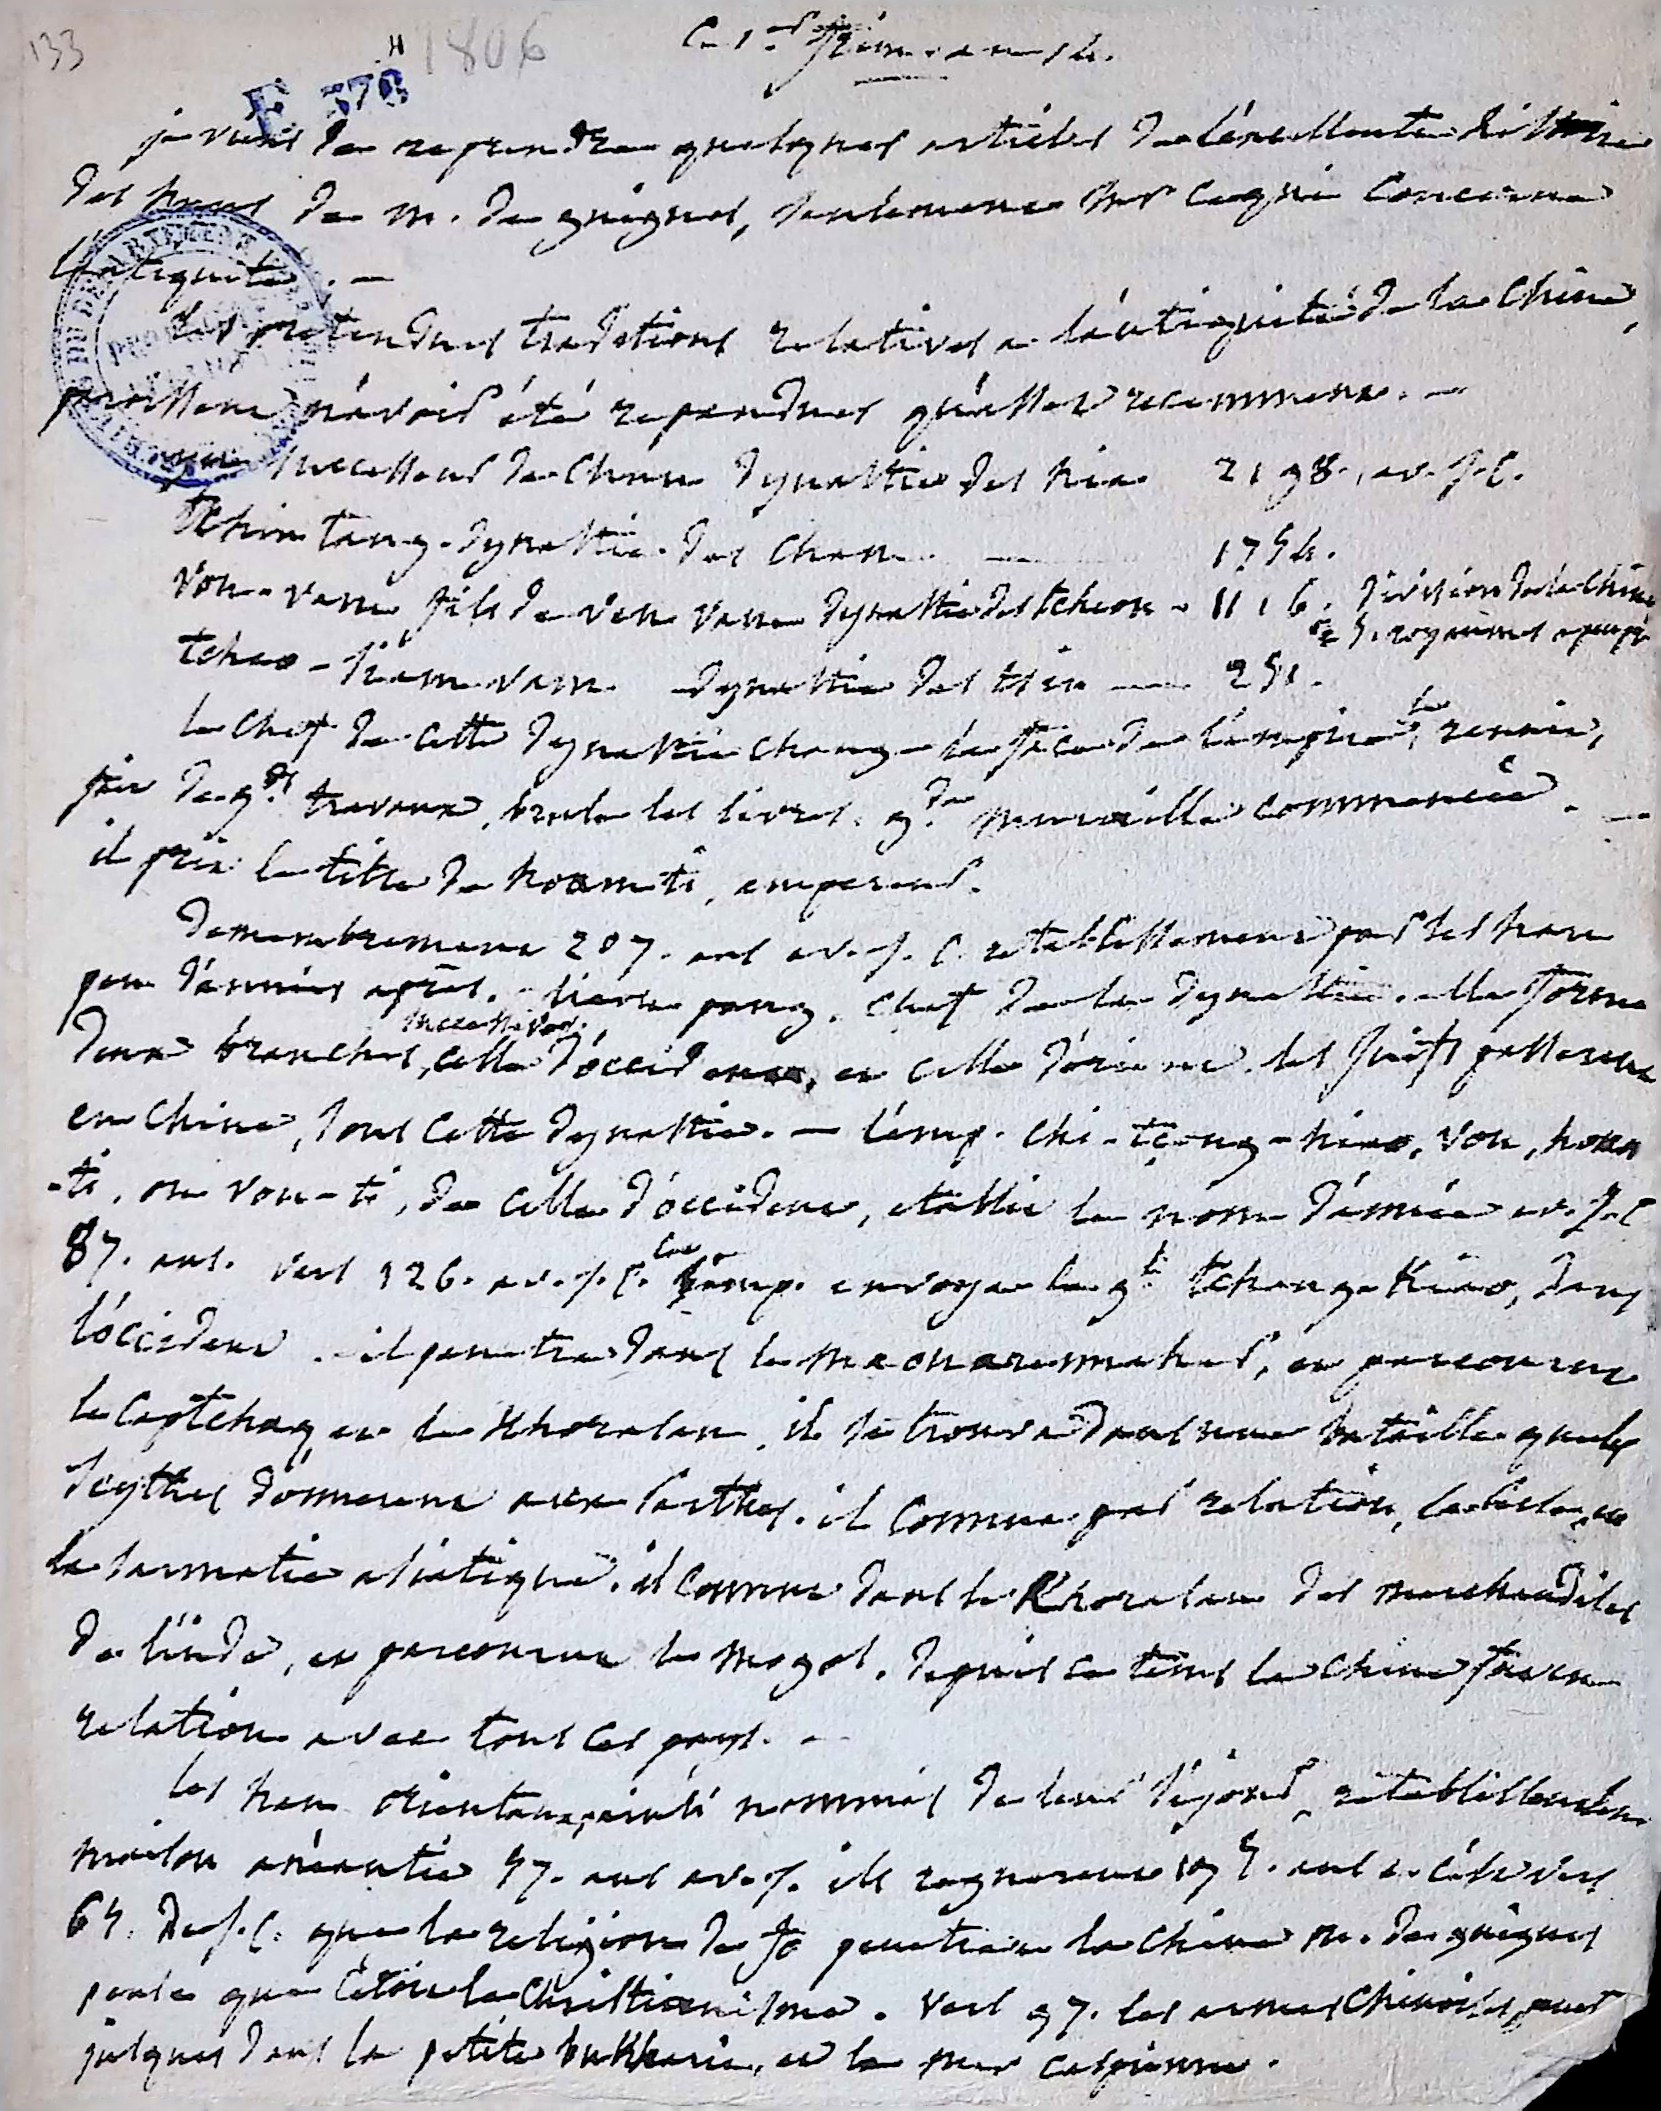 133
H 1806
E 376
Ce 1er frim. an 14.
je viens de reprendre quelques articles de l'excellente histoire
des huns de m. de guignes, seulement sur ce qui concerne
l'antiquité. —
les pretendues traditions relatives a l'antiquité de la Chine,
paroissent n'avoir été repandues qu'assez recemment. —
yu successeur de Chun dynastie des hia 2198. av. J.C.
Tchim tang. dynastie des Chan. — 1754.
Vou-vam fils de ven vam dynastie des tcheou - 1116. division de la Chine
royaumes a peu près
tchao-siam vam. dynastie des tsin — 251.
le Chef de cette dynastie change la face de l'empire, le reunit,
fait de gds travaux, brule les livres. gde muraille commencée. —
il prit le titre de hoam-ti, empereur.
Demembrement 207. ans av. J. C. retablissement par les han
peu d'années après. lieou pang. chef de la dynastie. elle forme
deux branches successives, celle d'occident, et celle d'orient. les Juifs passerent
en Chine, sous cette dynastie. — l'emp. Chi-tçong-hiao, vou, hoam
-ti, ou vou-ti, de celle d'occident, etablit le nom d'année av. J.C
87. ans. vers 126. av. J. C. cet emp. envoya le gl tchang-Kiao, dans
l'occident. il penetra dans le maouarennahar, et parcourut
le Captchaq et le Khorasan. il se trouva dans une bataille que les
scythes donnerent aux Parthes. il connut par relation,
la sarmatie asiatique. il connut dans le Khorasan des marchandises
de l'inde, et parcourut le mogol. depuis ce tems la chine fut en
relation avec tous ces pays. —
les han orientaux, ainsi nommés de leur sejour, retablissent leur
maison anéantie 57. ans av. J. ils regnerent 195. ans. c'est vers
65. de J. C. que la religion de fo penetra la Chine m. de guignes
pense que c'étoit le Christianisme. vers 97. les armes Chinoises
jusques dans la petite bukharie, et la mer caspienne.